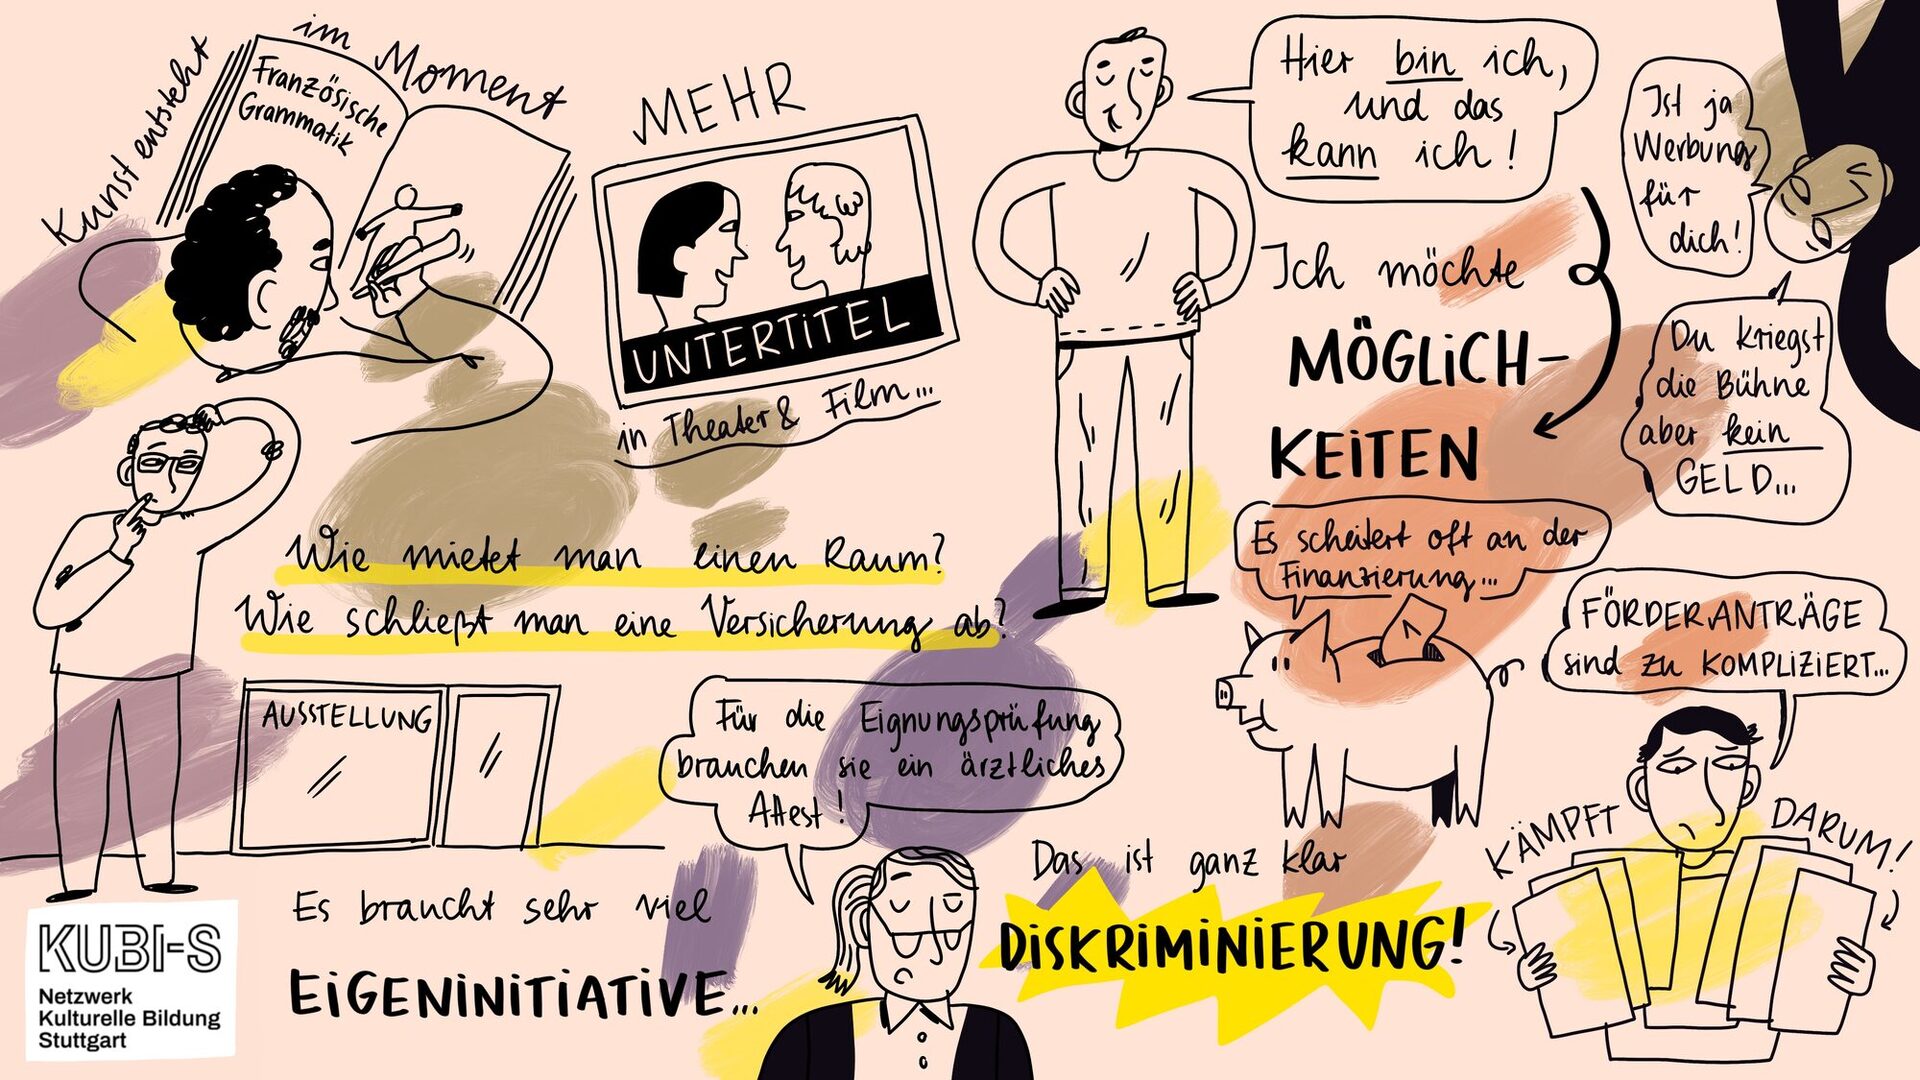 Kunst entsteht im Moment
Französische
Grammatik
MEHR
UNTERTITEL
in Theater & Film...
Hier bin ich,
und das
kann ich!
Ist ja
Werbung
für
dich!
Ich möchte
MÖGLICH-
KEITEN
Du kriegst
die Bühne
aber kein
GELD...
Wie mietet man einen Raum?
Wie schließt man eine Versicherung ab?
Es scheitert oft an der
Finanzierung...
FÖRDERANTRÄGE
sind zu KOMPLIZIERT...
AUSSTELLUNG
Für die Eignungsprüfung
brauchen sie ein ärztliches
Attest!
KÄMPFT DARUM!
Das ist ganz klar
DISKRIMINIERUNG!
Es braucht sehr viel
EIGENINITIATIVE...
KUBI-S
Netzwerk
Kulturelle Bildung
Stuttgart